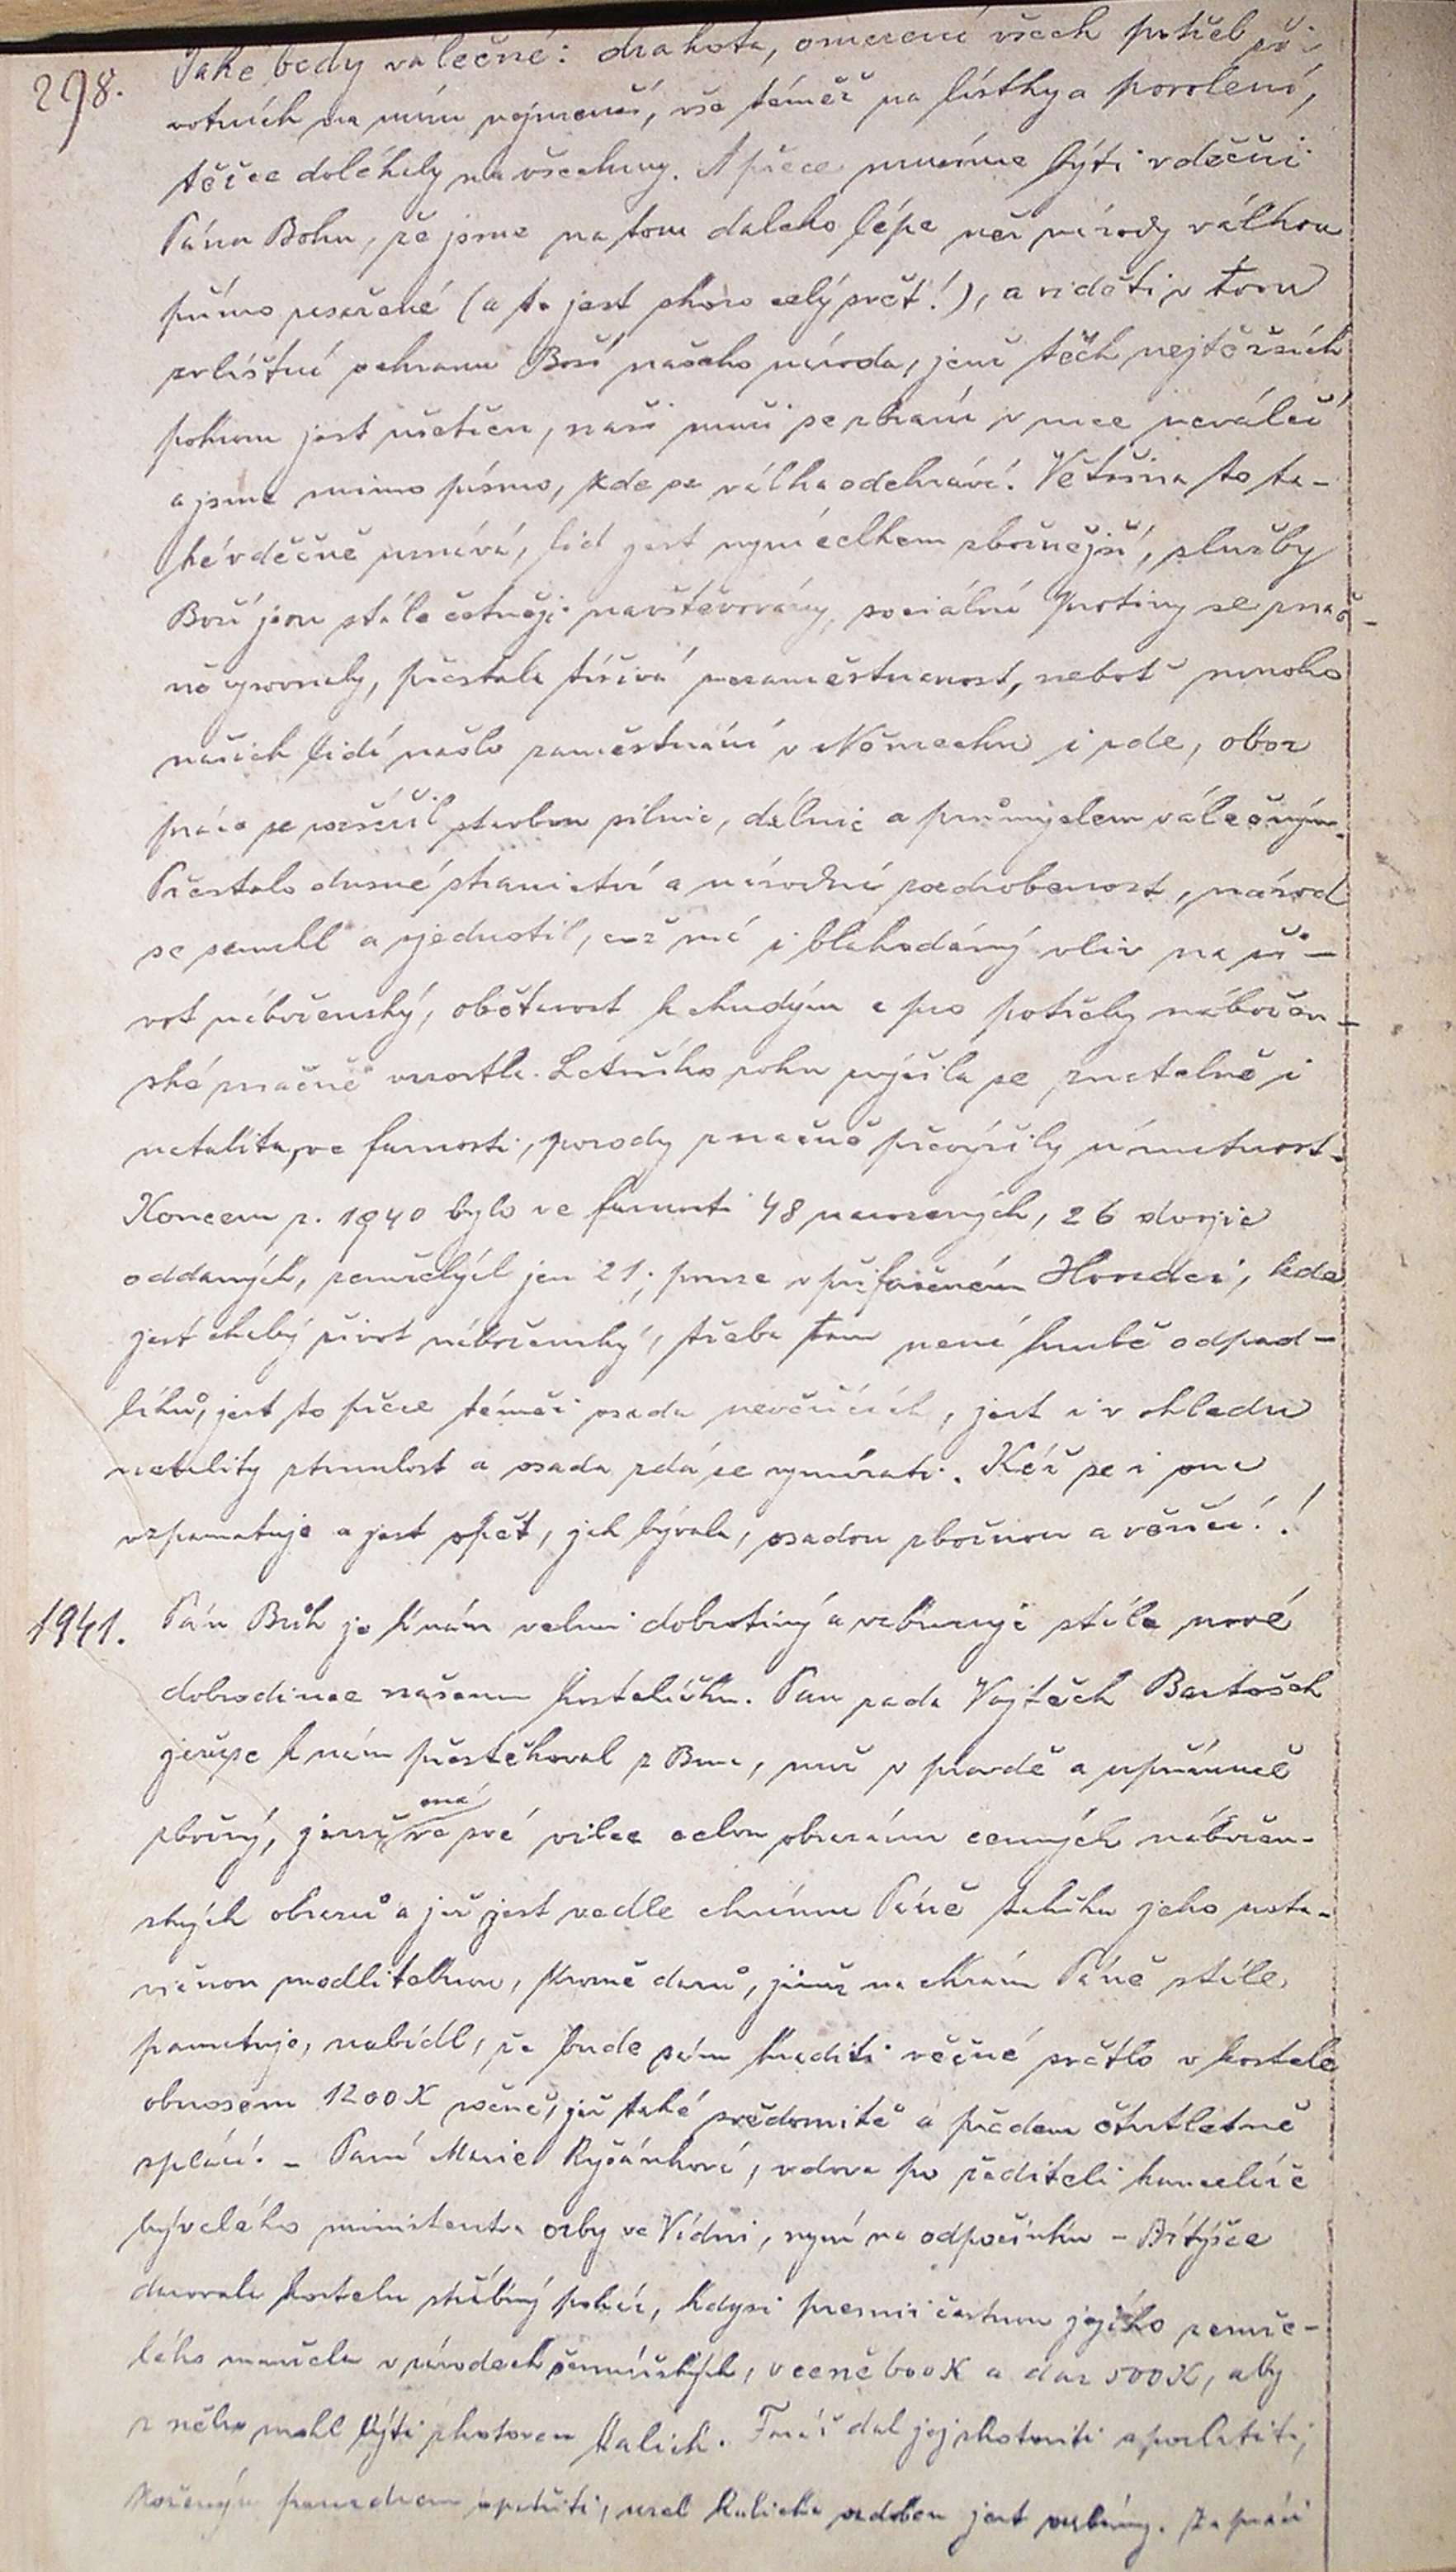 298.
Také bědy válečné: drahota, omezení všech potřeb ži-
votních na míru nejmenší, vše téměř na lístky a povolení,
těžce doléhaly na všechny. A přece musíme býti vděčni
Pánu Bohu, že jsme na tom daleko lépe než národy válkou
přímo zasažené (a to jest skoro celý svět!), a viděti v tom
zvláštní ochranu Boží našeho národa, jenž těch nejtěžších
pohrom jest ušetřen, naši muži se zbraní v ruce neválčí
a jsme mimo pásmo, kde se válka odehrává. Většina to ta-
ké vděčně uznává, lid jest nyní celkem zbožnější, služby
Boží jsou stále četněji navštěvovány, sociální protivy se znač-
ně vyrovnaly, přestala tíživá nezaměstnanost, neboť mnoho
našich lidí našlo zaměstnání v Německu i zde, obor
práce se rozšířil stavbou silnic, dálnic a průmyslem válečným.
Přestalo dusné stranictví a národní rozdrobenost, národ
se semkl a sjednotil, což má i blahodárný vliv na ži-
vot náboženský, obětavost k chudým a pro potřeby nábožen-
ské značně vzrostla. Letního roku zvýšila se znatelně i
natalita, ve farnosti, porody značně převýšily úmrtnost.
Koncem r. 1940 bylo ve farnosti 48 narozených, 26 dvojic
oddaných, zemřelých jen 21; pouze v přifařeném Hradci, kde
jest chabý život náboženský, třeba tam není hrubě odpad-
líků, jest to přece téměř osada nevěřících, jest i v ohledu
natality strnulost a osada zdá se vymírati. Kéž se i ona
vzpamatuje a jest opět, jak bývala, osadou zbožnou a věřící!!
1941. Pán Bůh je k nám velmi dobrotivý a vzbuzuje stále nové
dobrodince našemu kostelíčku. Pan rada Vojtěch Bartošek
jenž se k nám přestěhoval z Brna, muž v pravdě a upřímně
zbožný, jenž má ve své vilce celou obrazárnu cenných nábožen-
ských obrazů a jež jest vedle chrámu Páně takřka jeho usta-
vičnou modlitebnou, kromě darů, jimiž na chrám Páně stále
pamatuje, nabídl, že bude sám hraditi věčné světlo v kostele
obnosem 1200 K ročně, jež také svědomitě a předem čtvrtletně
splácí. – Paní Marie Ryšánková, vdova po řediteli kanceláře
bývalého ministerstva orby ve Vídni, nyní na odpočinku – Bítýšce
darovala kostelu stříbrný pohár, kdysi premii čestnou jejího zemře-
lého manžela v závodech, v ceně 600 K a dar 500 K, aby
z něho mohl býti zhotoven kalich. Farář dal jej zhotoviti a pozlatiti,
koženým pouzdrem opatřiti, uzel kalicha ozdoben jest. Za práci